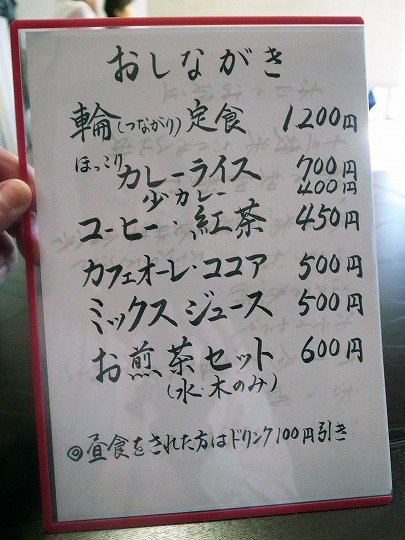 おしながき
輪(つながり)定食 1,200円
ほっこりカレーライス 700円
少カレー 400円
コーヒー・紅茶 450円
カフェオーレ・ココア 500円
ミックスジュース 500円
お煎茶セット 600円
(水・木のみ)
◎昼食をされた方はドリンク100円引き